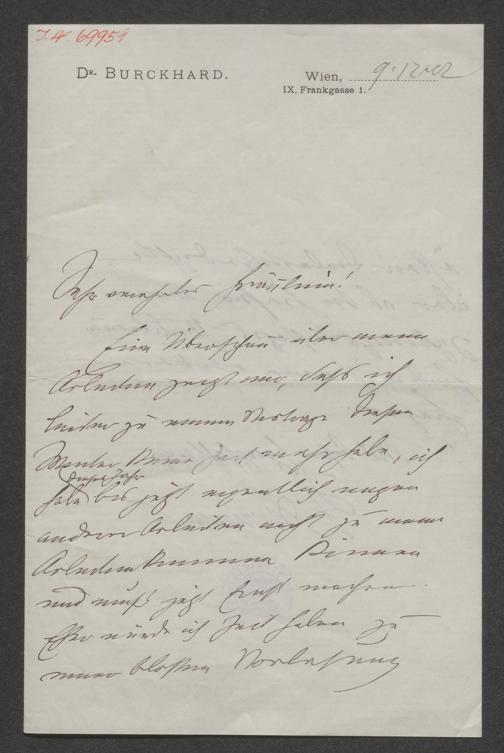 I.N. 69951
Dr. BURCKHARD.
Wien, 9. 12 02
IX, Frankgasse 1.
Sehr verehrtes Fräulein!
Eine Überschau über meine
Arbeiten zeigt mir, daß ich
leider zu einem Vortrage diesen
Winter keine Zeit mehr habe, ich
dieses Jahr
habe bis jetzt eigentlich wegen
anderer Arbeiten nicht zu meinen
Arbeiten kommen können
und muß jetzt Ernst machen.
Eher würde ich Zeit haben zu
einer bloßen Vorlesung